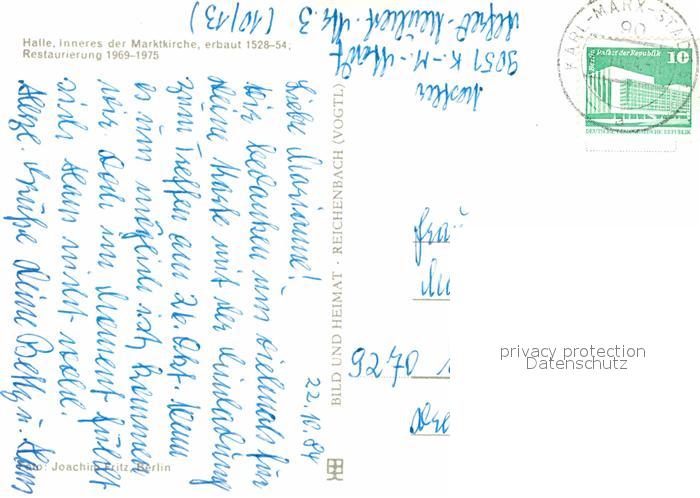 Halle, Inneres der Marktkirche, erbaut 1528–54;
Restaurierung 1969–1975
9051 K.-M.-Stadt
(10/13)
KARL-MARX-STADT
90
Berlin, Palast der Republik
10
DEUTSCHE DEMOKRATISCHE REPUBLIK
22.10.84
Liebe Marianne!
Wir bedanken uns vielmals für
Deine Karte mit der Einladung
zum Treffen am 26. Okt. Wenn
es uns möglich ist kommen
wir. Doch im Moment fühlt
sich Hans nicht wohl.
Herzl. Grüße Deine Betty u. Hans
BILD UND HEIMAT · REICHENBACH (VOGTL)
privacy protection
Datenschutz
Foto: Joachim Fritz, Berlin